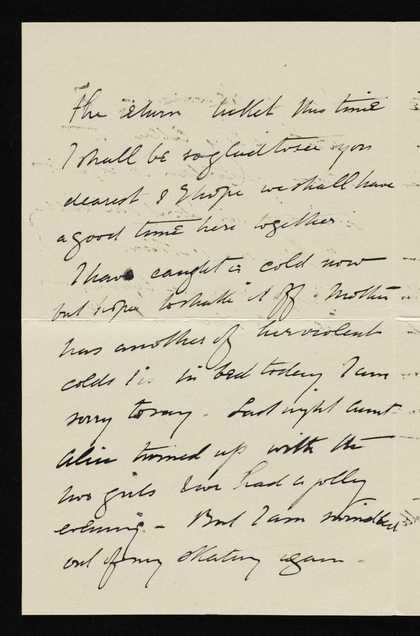 The return ticket this time
I shall be so glad to see you
dearest & I hope we shall have
a good time here together.
I have caught a cold now
but hope to shake it off. Mother
has another of her violent
colds & is in bed today I am
sorry to say. Last night Aunt
Alice turned up with the
two girls & we had a jolly
evening - But I am
out of my skating again -